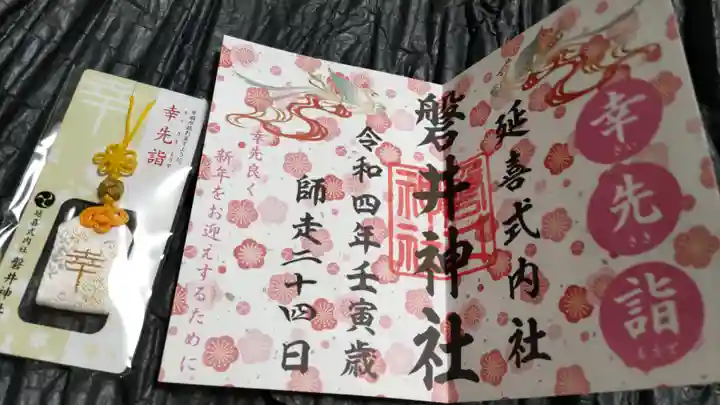 幸先詣
さいさきもうで
延喜式内社
磐井神社
令和四年壬寅歳
師走二十四日
幸先良く
新年をお迎えするために
幸先詣
幸
延喜式内社 磐井神社